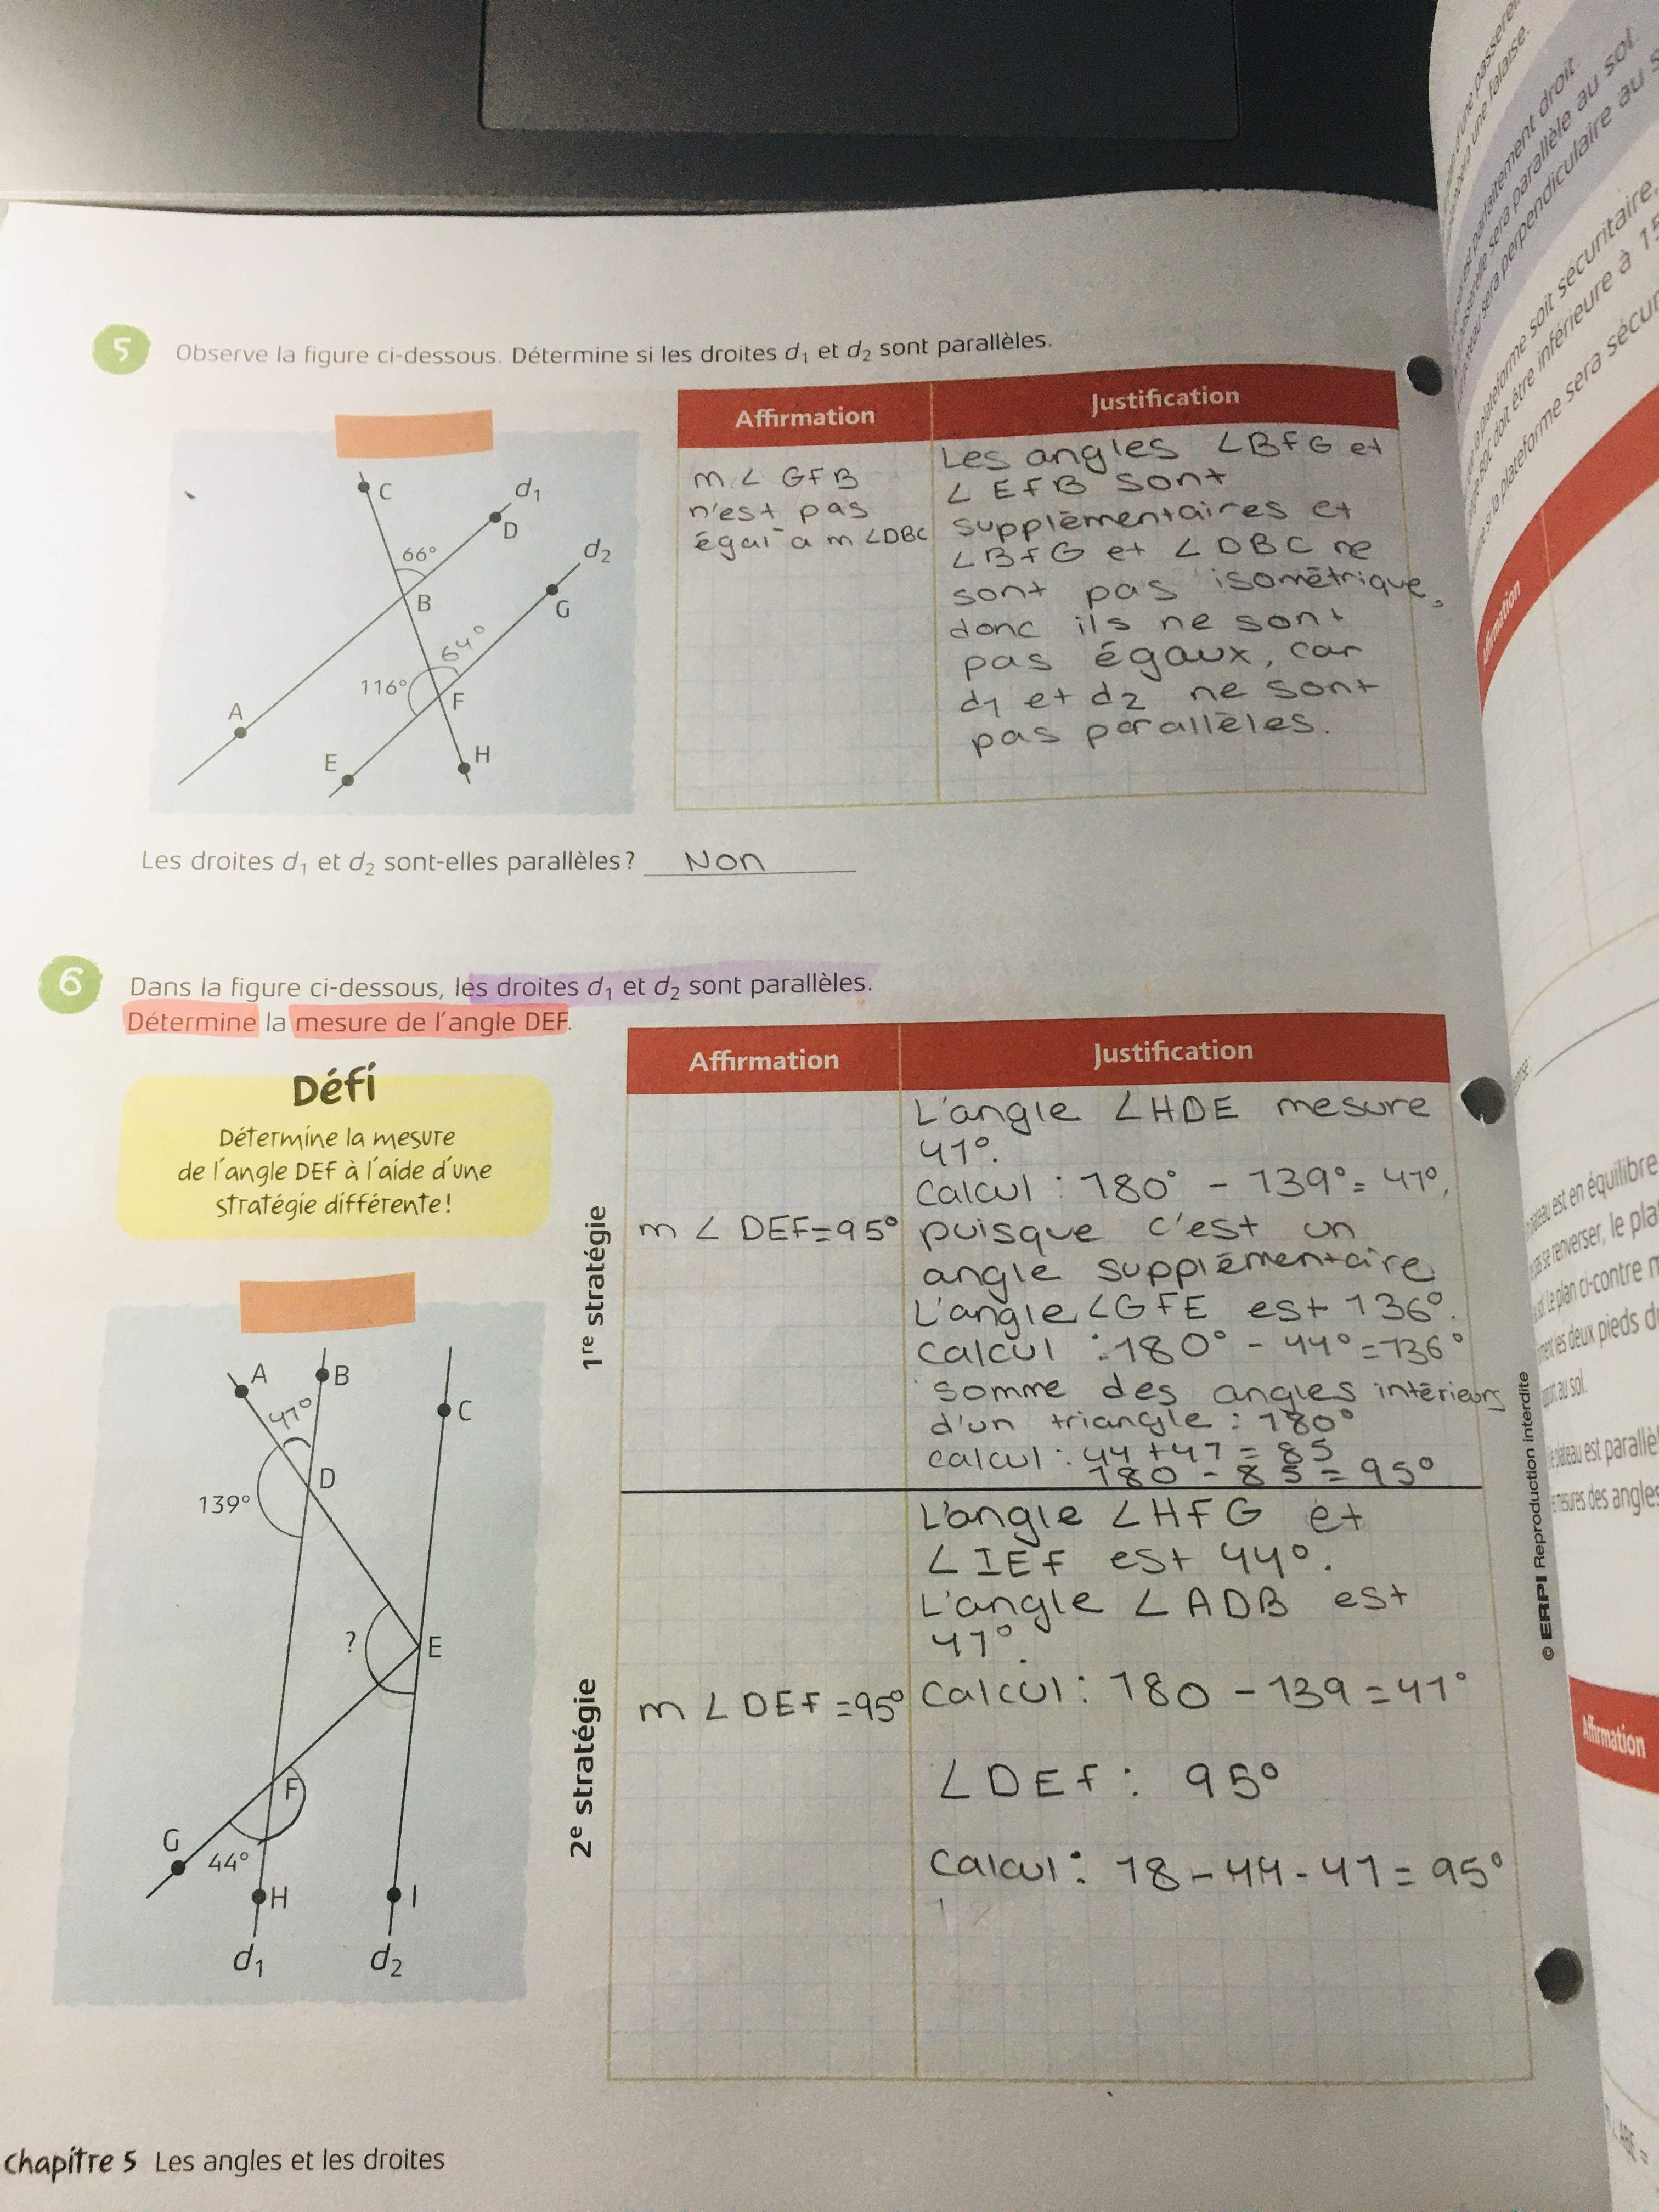 5 Observe la figure ci-dessous. Détermine si les droites d₁ et d₂ sont parallèles.
C
d₁
D
66°
d₂
B
G
64°
116°
F
A
E
H
Affirmation
Justification
m∠ GFB
n'est pas
égal à m∠DBC
Les angles ∠BFG et
∠EFB sont
supplémentaires et
∠BFG et ∠DBC ne
sont pas isométrique,
donc ils ne sont
pas égaux, car
d1 et d2 ne sont
pas parallèles.
Les droites d₁ et d₂ sont-elles parallèles ? Non
6 Dans la figure ci-dessous, les droites d₁ et d₂ sont parallèles.
Détermine la mesure de l'angle DEF.
Défi
Détermine la mesure
de l'angle DEF à l'aide d'une
stratégie différente !
A
B
41°
C
D
139°
?
E
F
G
44°
H
I
d₁
d₂
Affirmation
Justification
1re stratégie
m ∠ DEF=95°
L'angle ∠HDE mesure
41°.
Calcul : 180° - 139°= 41°,
puisque c'est un
angle supplémentaire
L'angle ∠GFE est 136°.
Calcul : 180° - 44° = 136°
somme des angles intérieurs
d'un triangle : 180°
calcul : 44 + 41 = 85
180 - 85 = 95°
2e stratégie
m ∠ DEF =95°
L'angle ∠HFG et
∠IEF est 44°.
L'angle ∠ADB est
41°.
Calcul : 180 - 139 = 41°
∠DEF : 95°
Calcul : 18 - 44 - 41 = 95°
© ERPI Reproduction interdite
chapitre 5 Les angles et les droites
parfaitement droit.
sera parallèle au sol.
sera perpendiculaire au
plateforme soit sécuritaire,
doit être inférieure à 15
si la plateforme sera sécur
Affirmation
est en équilibre
se renverser, le pla
Le plan ci-contre m
les deux pieds d
au sol.
est parallèl
mesures des angles
Affirmation